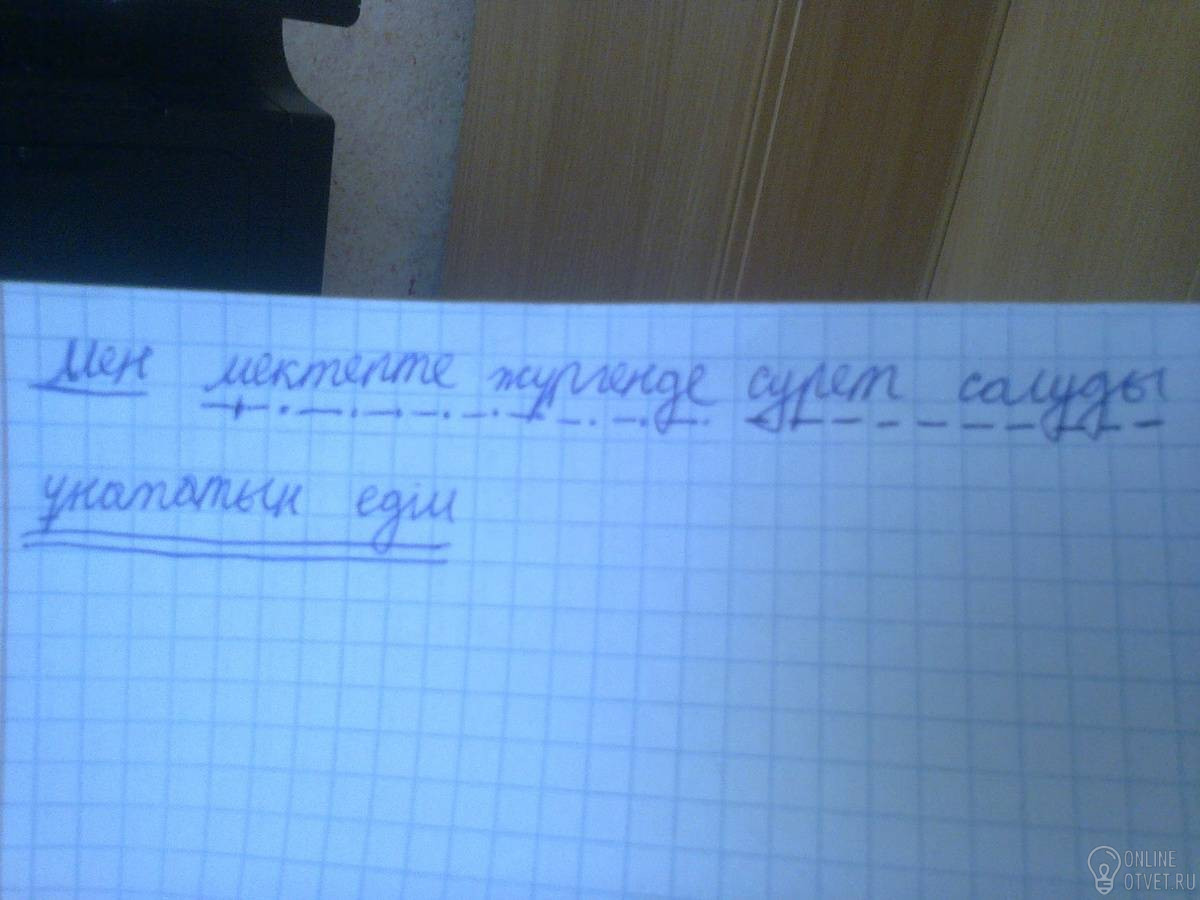 Мен мектепте жургенде сурет салуды
унататын едім
ONLINE
OTVET.RU